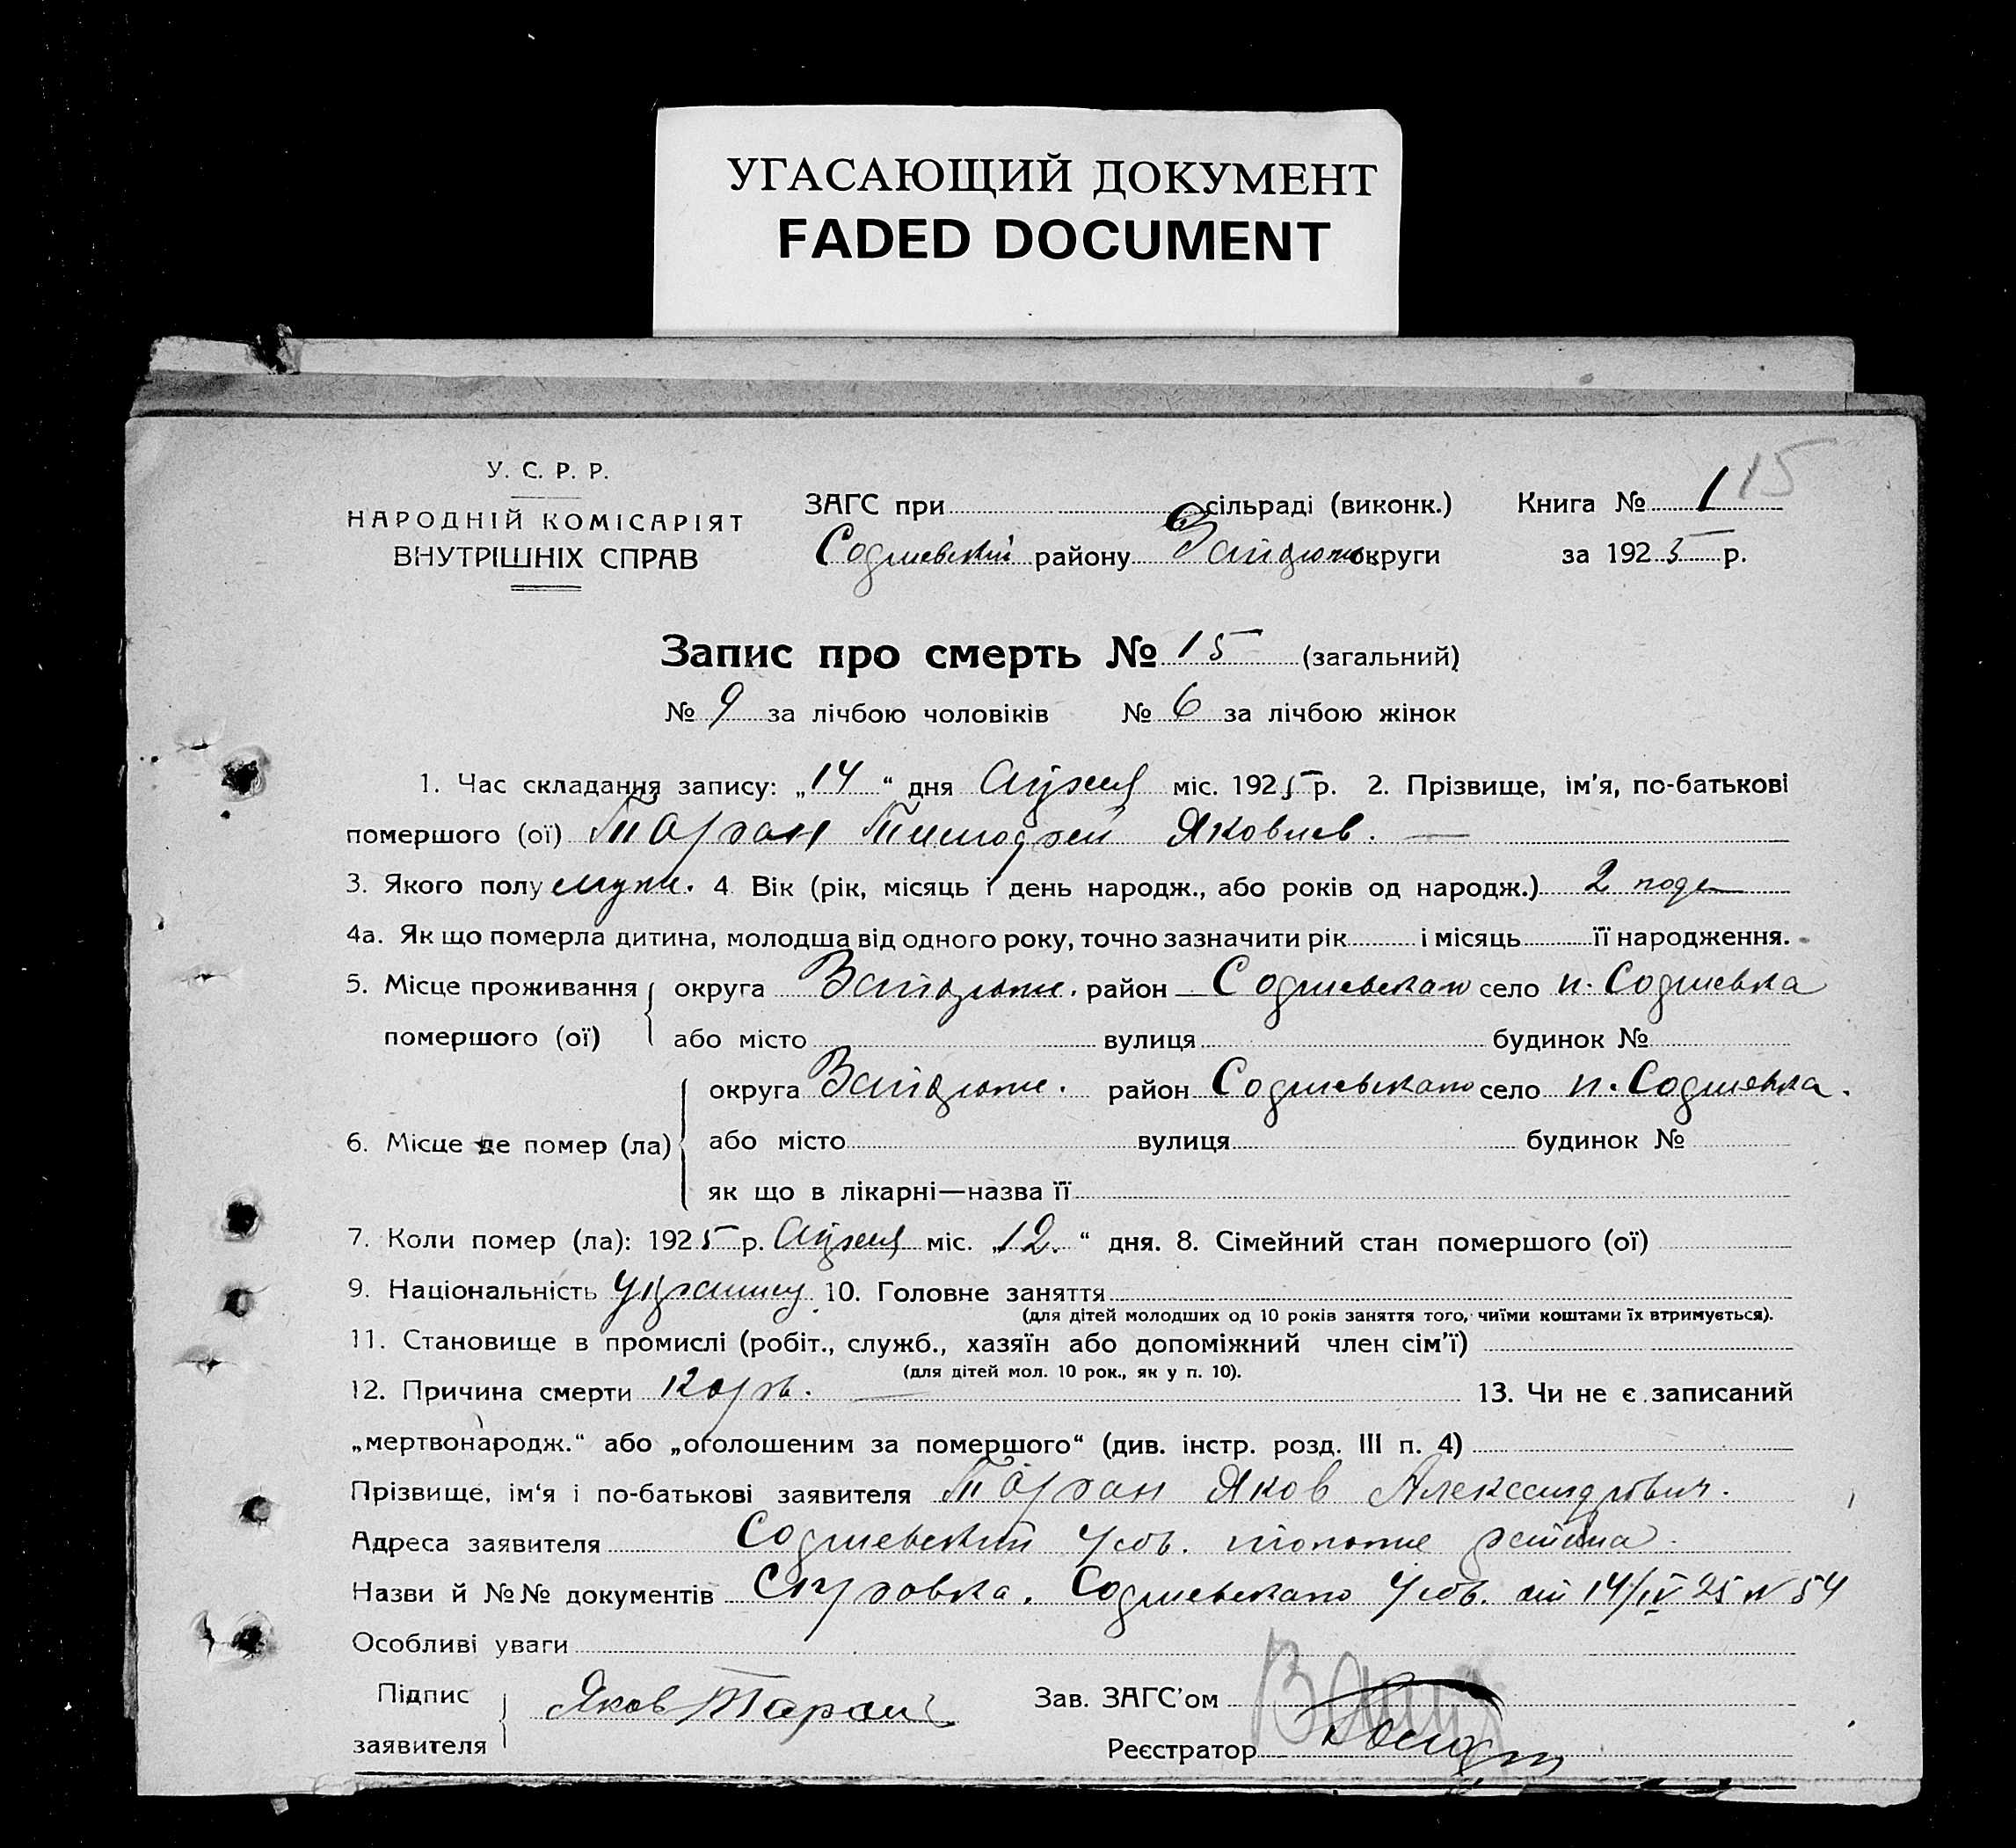 УГАСАЮЩИЙ ДОКУМЕНТ
FADED DOCUMENT
15
У. С. Р. Р.
НАРОДНІЙ КОМІСАРІЯТ
ВНУТРІШНІХ СПРАВ
ЗАГС при сільраді (виконк.) Книга № 1
Софиевский району Запорож. округи за 1925 р.
Запис про смерть № 15 (загальний)
№ 9 за лічбою чоловіків № 6 за лічбою жінок
1. Час складання запису: „14“ дня Апреля міс. 1925 р. 2. Прізвище, ім'я, по-батькові
помершого (ої) Таран Тимофей Яковлев. —
3. Якого полу муж. 4 Вік (рік, місяць і день народж., або років од народж.) 2 года
4а. Як що померла дитина, молодша від одного року, точно зазначити рік і місяць її народження.
5. Місце проживання округа Запорож. район Софиевского село п. Софиевка
помершого (ої) або місто вулиця будинок №
округа Запорож. район Софиевского село п. Софиевка.
6. Місце де помер (ла) або місто вулиця будинок №
як що в лікарні—назва її
7. Коли помер (ла): 1925 р. Апреля міс. „12.“ дня. 8. Сімейний стан помершого (ої)
9. Національність 10. Головне заняття
(для дітей молодших од 10 років заняття того, чиїми коштами їх втримується).
11. Становище в промислі (робіт., служб., хазяїн або допоміжний член сім'ї)
(для дітей мол. 10 рок., як у п. 10).
12. Причина смерти Корь. — 13. Чи не є записаний
„мертвонародж.“ або „оголошеним за помершого“ (див. інстр. розд. III п. 4)
Прізвище, ім'я і по-батькові заявителя Таран Яков Александрович.
Адреса заявителя Софиевский района
Назви й №№ документів Софиевского от 14/IV 25 N 54
Особливі уваги
Підпис Яков Таран Зав. ЗАГС'ом
заявителя Реєстратор